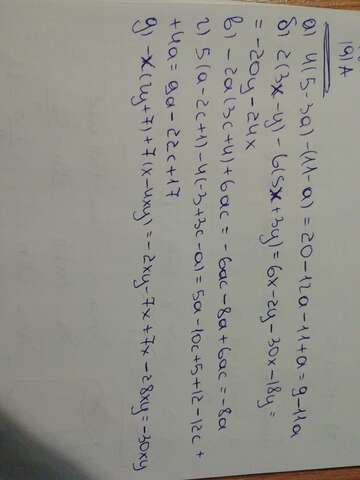 19)А
а) 4(5-3a)-(11-a)=20-12a-11+a=9-11a
б) 2(3x-y)-6(5x+3y)=6x-2y-30x-18y=
=-20y-24x
в) -2a(3c+4)+6ac=-6ac-8a+6ac=-8a
г) 5(a-2c+1)-4(-3+3c-a)=5a-10c+5+12-12c+
+4a=9a-22c+17
д) -x(2y+7)+7(x-4xy)=-2xy-7x+7x-28xy=-30xy